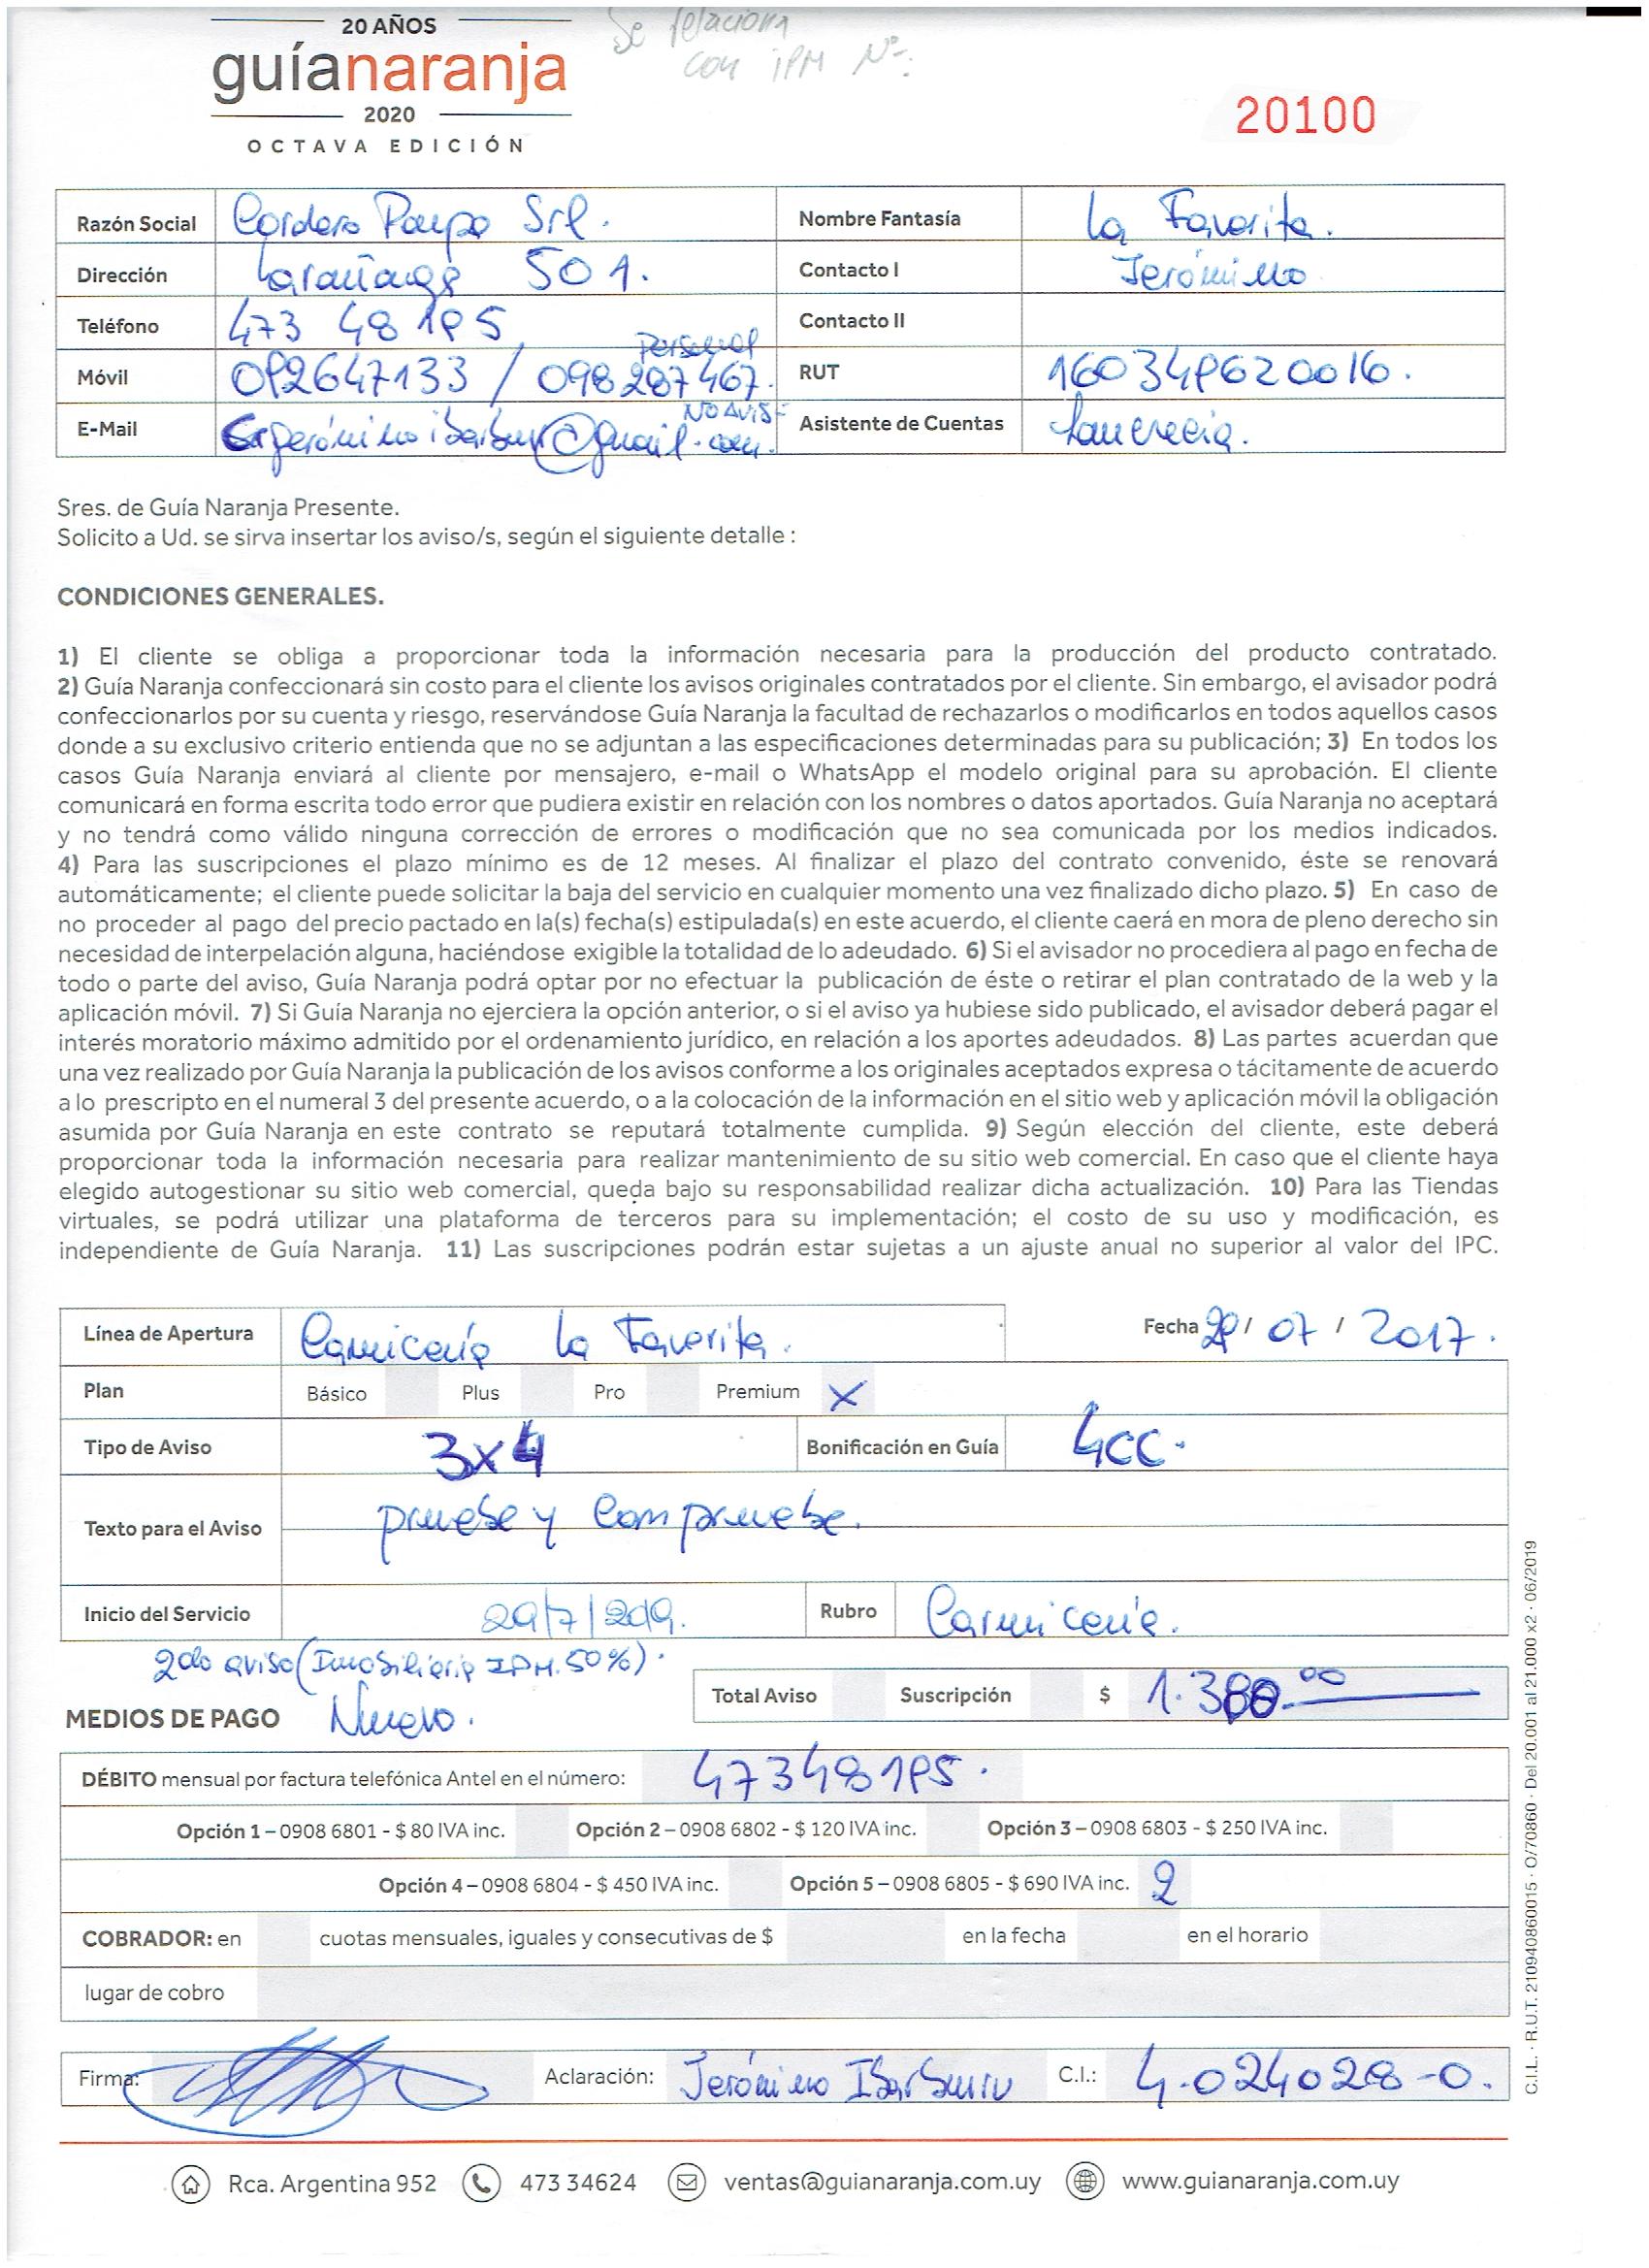 20 AÑOS
guíanaranja
2020
OCTAVA EDICIÓN
Se relaciona
con IPM Nº:
20100
Razón Social Cordero Paupo Srl. Nombre Fantasía La Favorita.
Dirección Larrañaga 501. Contacto I Jerónimo
Teléfono 473 48195 Contacto II
Personal
Móvil 092647133 / 098287467. RUT 160349620016.
NO AVISO
E-Mail jerónimo ibarburu@gmail.com. Asistente de Cuentas Laucrecia.
Sres. de Guía Naranja Presente.
Solicito a Ud. se sirva insertar los aviso/s, según el siguiente detalle :
CONDICIONES GENERALES.
1) El cliente se obliga a proporcionar toda la información necesaria para la producción del producto contratado.
2) Guía Naranja confeccionará sin costo para el cliente los avisos originales contratados por el cliente. Sin embargo, el avisador podrá
confeccionarlos por su cuenta y riesgo, reservándose Guía Naranja la facultad de rechazarlos o modificarlos en todos aquellos casos
donde a su exclusivo criterio entienda que no se adjuntan a las especificaciones determinadas para su publicación; 3) En todos los
casos Guía Naranja enviará al cliente por mensajero, e-mail o WhatsApp el modelo original para su aprobación. El cliente
comunicará en forma escrita todo error que pudiera existir en relación con los nombres o datos aportados. Guía Naranja no aceptará
y no tendrá como válido ninguna corrección de errores o modificación que no sea comunicada por los medios indicados.
4) Para las suscripciones el plazo mínimo es de 12 meses. Al finalizar el plazo del contrato convenido, éste se renovará
automáticamente; el cliente puede solicitar la baja del servicio en cualquier momento una vez finalizado dicho plazo. 5) En caso de
no proceder al pago del precio pactado en la(s) fecha(s) estipulada(s) en este acuerdo, el cliente caerá en mora de pleno derecho sin
necesidad de interpelación alguna, haciéndose exigible la totalidad de lo adeudado. 6) Si el avisador no procediera al pago en fecha de
todo o parte del aviso, Guía Naranja podrá optar por no efectuar la publicación de éste o retirar el plan contratado de la web y la
aplicación móvil. 7) Si Guía Naranja no ejerciera la opción anterior, o si el aviso ya hubiese sido publicado, el avisador deberá pagar el
interés moratorio máximo admitido por el ordenamiento jurídico, en relación a los aportes adeudados. 8) Las partes acuerdan que
una vez realizado por Guía Naranja la publicación de los avisos conforme a los originales aceptados expresa o tácitamente de acuerdo
a lo prescripto en el numeral 3 del presente acuerdo, o a la colocación de la información en el sitio web y aplicación móvil la obligación
asumida por Guía Naranja en este contrato se reputará totalmente cumplida. 9) Según elección del cliente, este deberá
proporcionar toda la información necesaria para realizar mantenimiento de su sitio web comercial. En caso que el cliente haya
elegido autogestionar su sitio web comercial, queda bajo su responsabilidad realizar dicha actualización. 10) Para las Tiendas
virtuales, se podrá utilizar una plataforma de terceros para su implementación; el costo de su uso y modificación, es
independiente de Guía Naranja. 11) Las suscripciones podrán estar sujetas a un ajuste anual no superior al valor del IPC.
Línea de Apertura Carnicería La Favorita. Fecha 29/ 07 / 2017.
Plan Básico Plus Pro Premium X
Tipo de Aviso 3x4 Bonificación en Guía 4CC.
Texto para el Aviso pruebe y compruebe.
Inicio del Servicio 29/7/2019. Rubro Carnicería.
2do aviso (Imobiliaria IPM. 50%).
Total Aviso Suscripción $ 1.380.00
MEDIOS DE PAGO Nuevo.
DÉBITO mensual por factura telefónica Antel en el número: 47348195.
Opción 1 – 0908 6801 - $ 80 IVA inc. Opción 2 – 0908 6802 - $ 120 IVA inc. Opción 3 – 0908 6803 - $ 250 IVA inc.
Opción 4 – 0908 6804 - $ 450 IVA inc. Opción 5 – 0908 6805 - $ 690 IVA inc. 2
COBRADOR: en cuotas mensuales, iguales y consecutivas de $ en la fecha en el horario
lugar de cobro
Firma: Aclaración: Jerónimo Ibarburu C.I.: 4.024028-0.
Rca. Argentina 952 473 34624 ventas@guianaranja.com.uy www.guianaranja.com.uy
C.I.L. · R.U.T. 210940860015 · O/70860 · Del 20.001 al 21.000 x2 · 06/2019